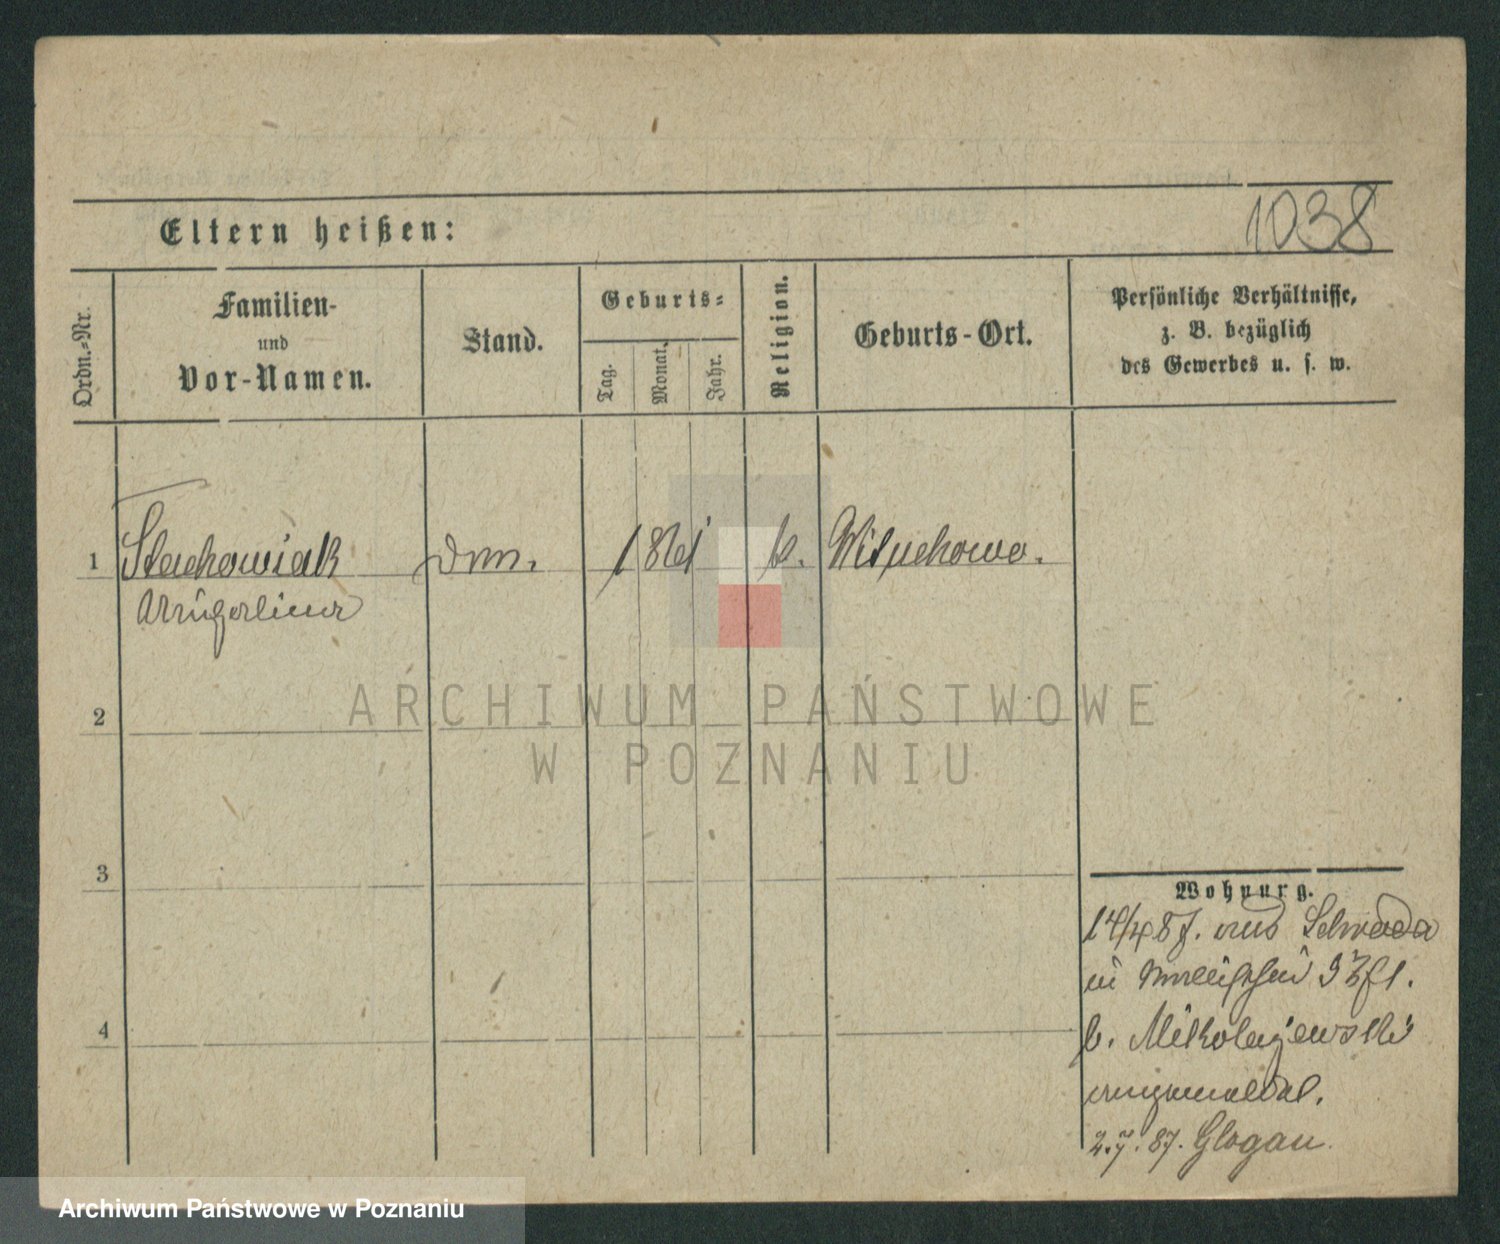 Eltern heißen:
1038
Ordn.-Nr.
Familien-
und
Vor-Namen.
Stand.
Geburts-
Tag.
Monat.
Jahr.
Religion.
Geburts-Ort.
Persönliche Verhältnisse,
z. B. bezüglich
des Gewerbes u. s. w.
1
Stachowiak
1861
k.
2
3
4
Wohnung.
14/4 87. aus
in
b. Mikolajewski
angemeldet.
2.7.87. Glogau
ARCHIWUM PAŃSTWOWE
W POZNANIU
Archiwum Państwowe w Poznaniu